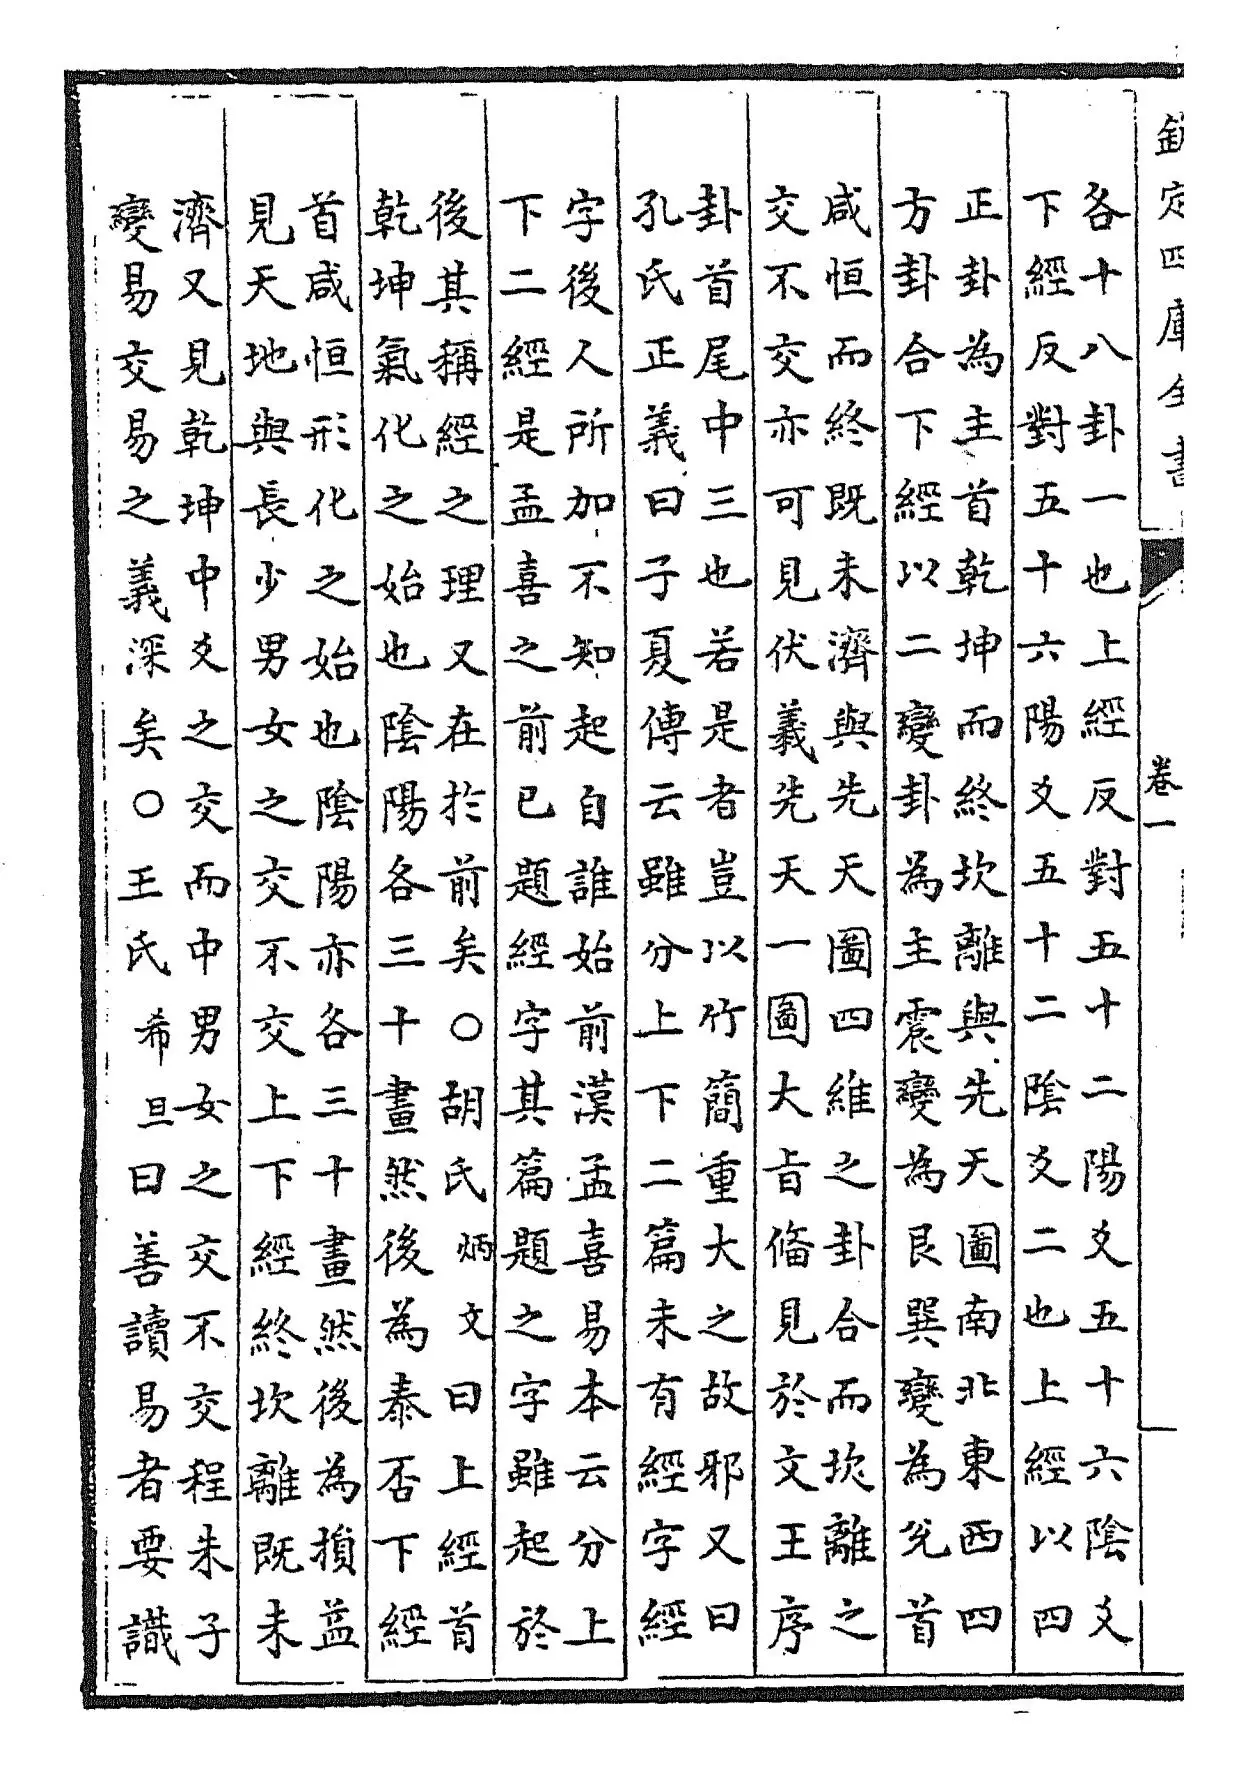 欽定四庫全書
卷一
各十八卦一也上經反對五十二陽爻五十六陰爻
下經反對五十六陽爻五十二陰爻二也上經以四
正卦為主首乾坤而終坎離與先天圖南北東西四
方卦合下經以二變卦為主震變為艮巽變為兌首
咸恒而終既未濟與先天圖四維之卦合而坎離之
交不交亦可見伏羲先天一圖大旨備見於文王序
卦首尾中三也若是者豈以竹簡重大之故邪又曰
孔氏正義曰子夏傳云雖分上下二篇未有經字經
字後人所加不知起自誰始前漢孟喜易本云分上
下二經是孟喜之前已題經字其篇題之字雖起於
後其稱經之理又在於前矣○胡氏炳文曰上經首
乾坤氣化之始也陰陽各三十畫然後為泰否下經
首咸恒形化之始也陰陽亦各三十畫然後為損益
見天地與長少男女之交不交上下經終坎離既未
濟又見乾坤中爻之交而中男女之交不交程朱子
變易交易之義深矣○王氏希旦曰善讀易者要識